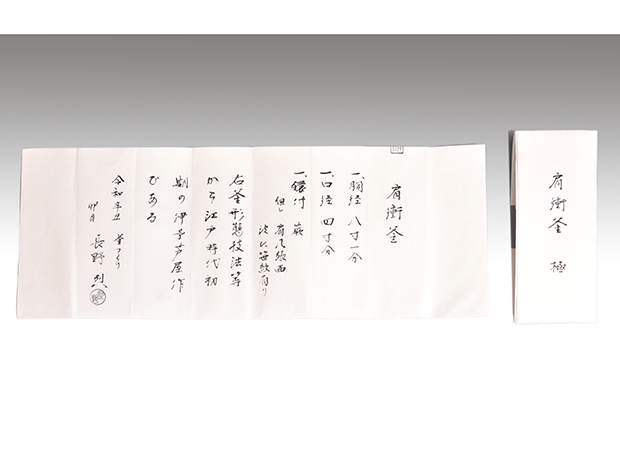 肩衝釜
一、胴径 八寸一分
一、口径 四寸分
一、鐶付 巌
但し 肩及張面
波に笹紋有り
右釜形態技法等
から江戸時代初
期の伊予芦屋作
である
令和辛丑 釜つくり
卯月 長野 烈
肩衝釜 極